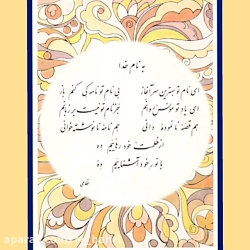 به نام خدا
ای نام تو بهترین سرآغاز بی نام تو نامه کی کنم باز
ای یاد تو مونس روانم جز نام تو نیست بر زبانم
هم قصه نانموده دانی هم نامه نانوشته خوانی
از ظلمت خود رهاییم ده
با نور خود آشناییم ده
نظامی